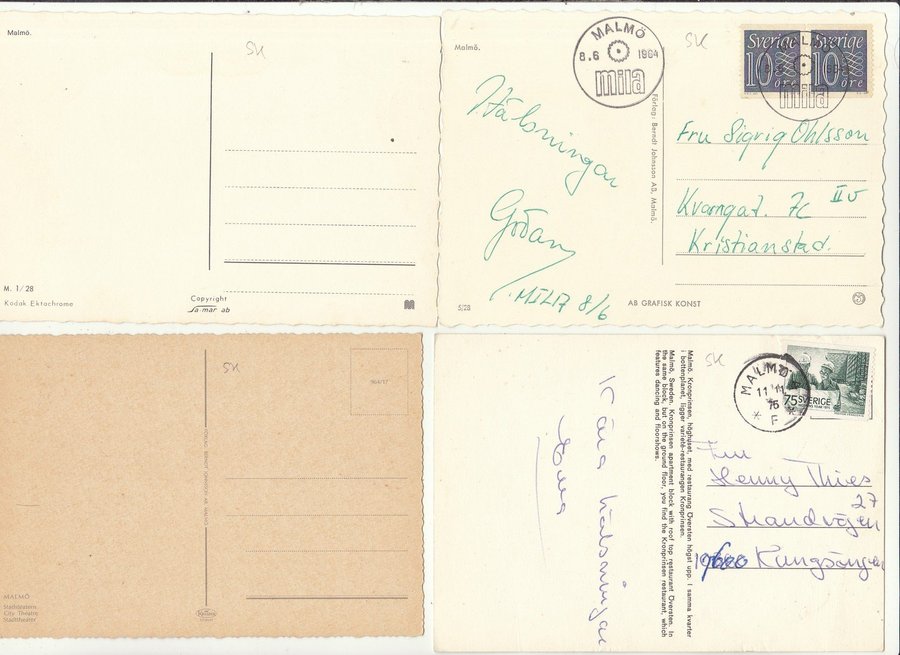 Malmö.
SK
M. 1/28
Kodak Ektachrome
Copyright
Sa-mar ab
Malmö.
MALMÖ
8.6 1964
mila
SK
Sverige Sverige
10 öre 10 öre
mila
Hälsningar
Göran
/MILIZ 8/6
Förlag: Berndt Johnsson AB, Malmö.
Fru Sigrig Ohlsson
Kvarngat. 7c IIv
Kristianstad.
5/28
AB GRAFISK KONST
SK
964/17
FÖRLAG: BERNDT JOHNSSON AB, MALMÖ
MALMÖ
Stadsteatern
City Theatre
Stadttheater
Malmö. Kronprinsen, höghuset, med restaurang Översten högst upp. I samma kvarter
i bottenplanet, ligger varieté-restaurangen Kronprinsen.
Malmö, Sweden. Kronprinsen apartment block with roof top restaurant Översten. In
the same block, but on the ground floor, you find the Kronprinsen restaurant, which
features dancing and floorshows.
SK
MALMÖ
11
75
F
75 SVERIGE
Kära hälsningar
Fru
Henny Thies
Strandvägen 27
Kungsängen